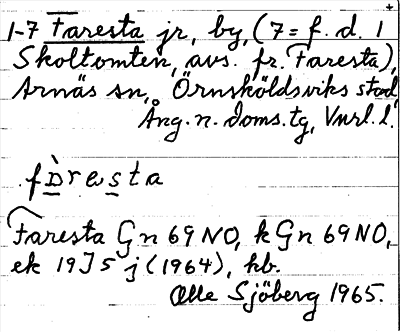 1-7 Faresta jr, by, (7 = f. d. 1
Skoltomten, avs. fr. Faresta),
Arnäs sn, Örnsköldsviks stad,
Ång. n. doms. tg, Vnrl. l.
fàresta
Faresta Gn 69 NO, k Gn 69 NO,
ek 19J5j (1964), hb.
Olle Sjöberg 1965.